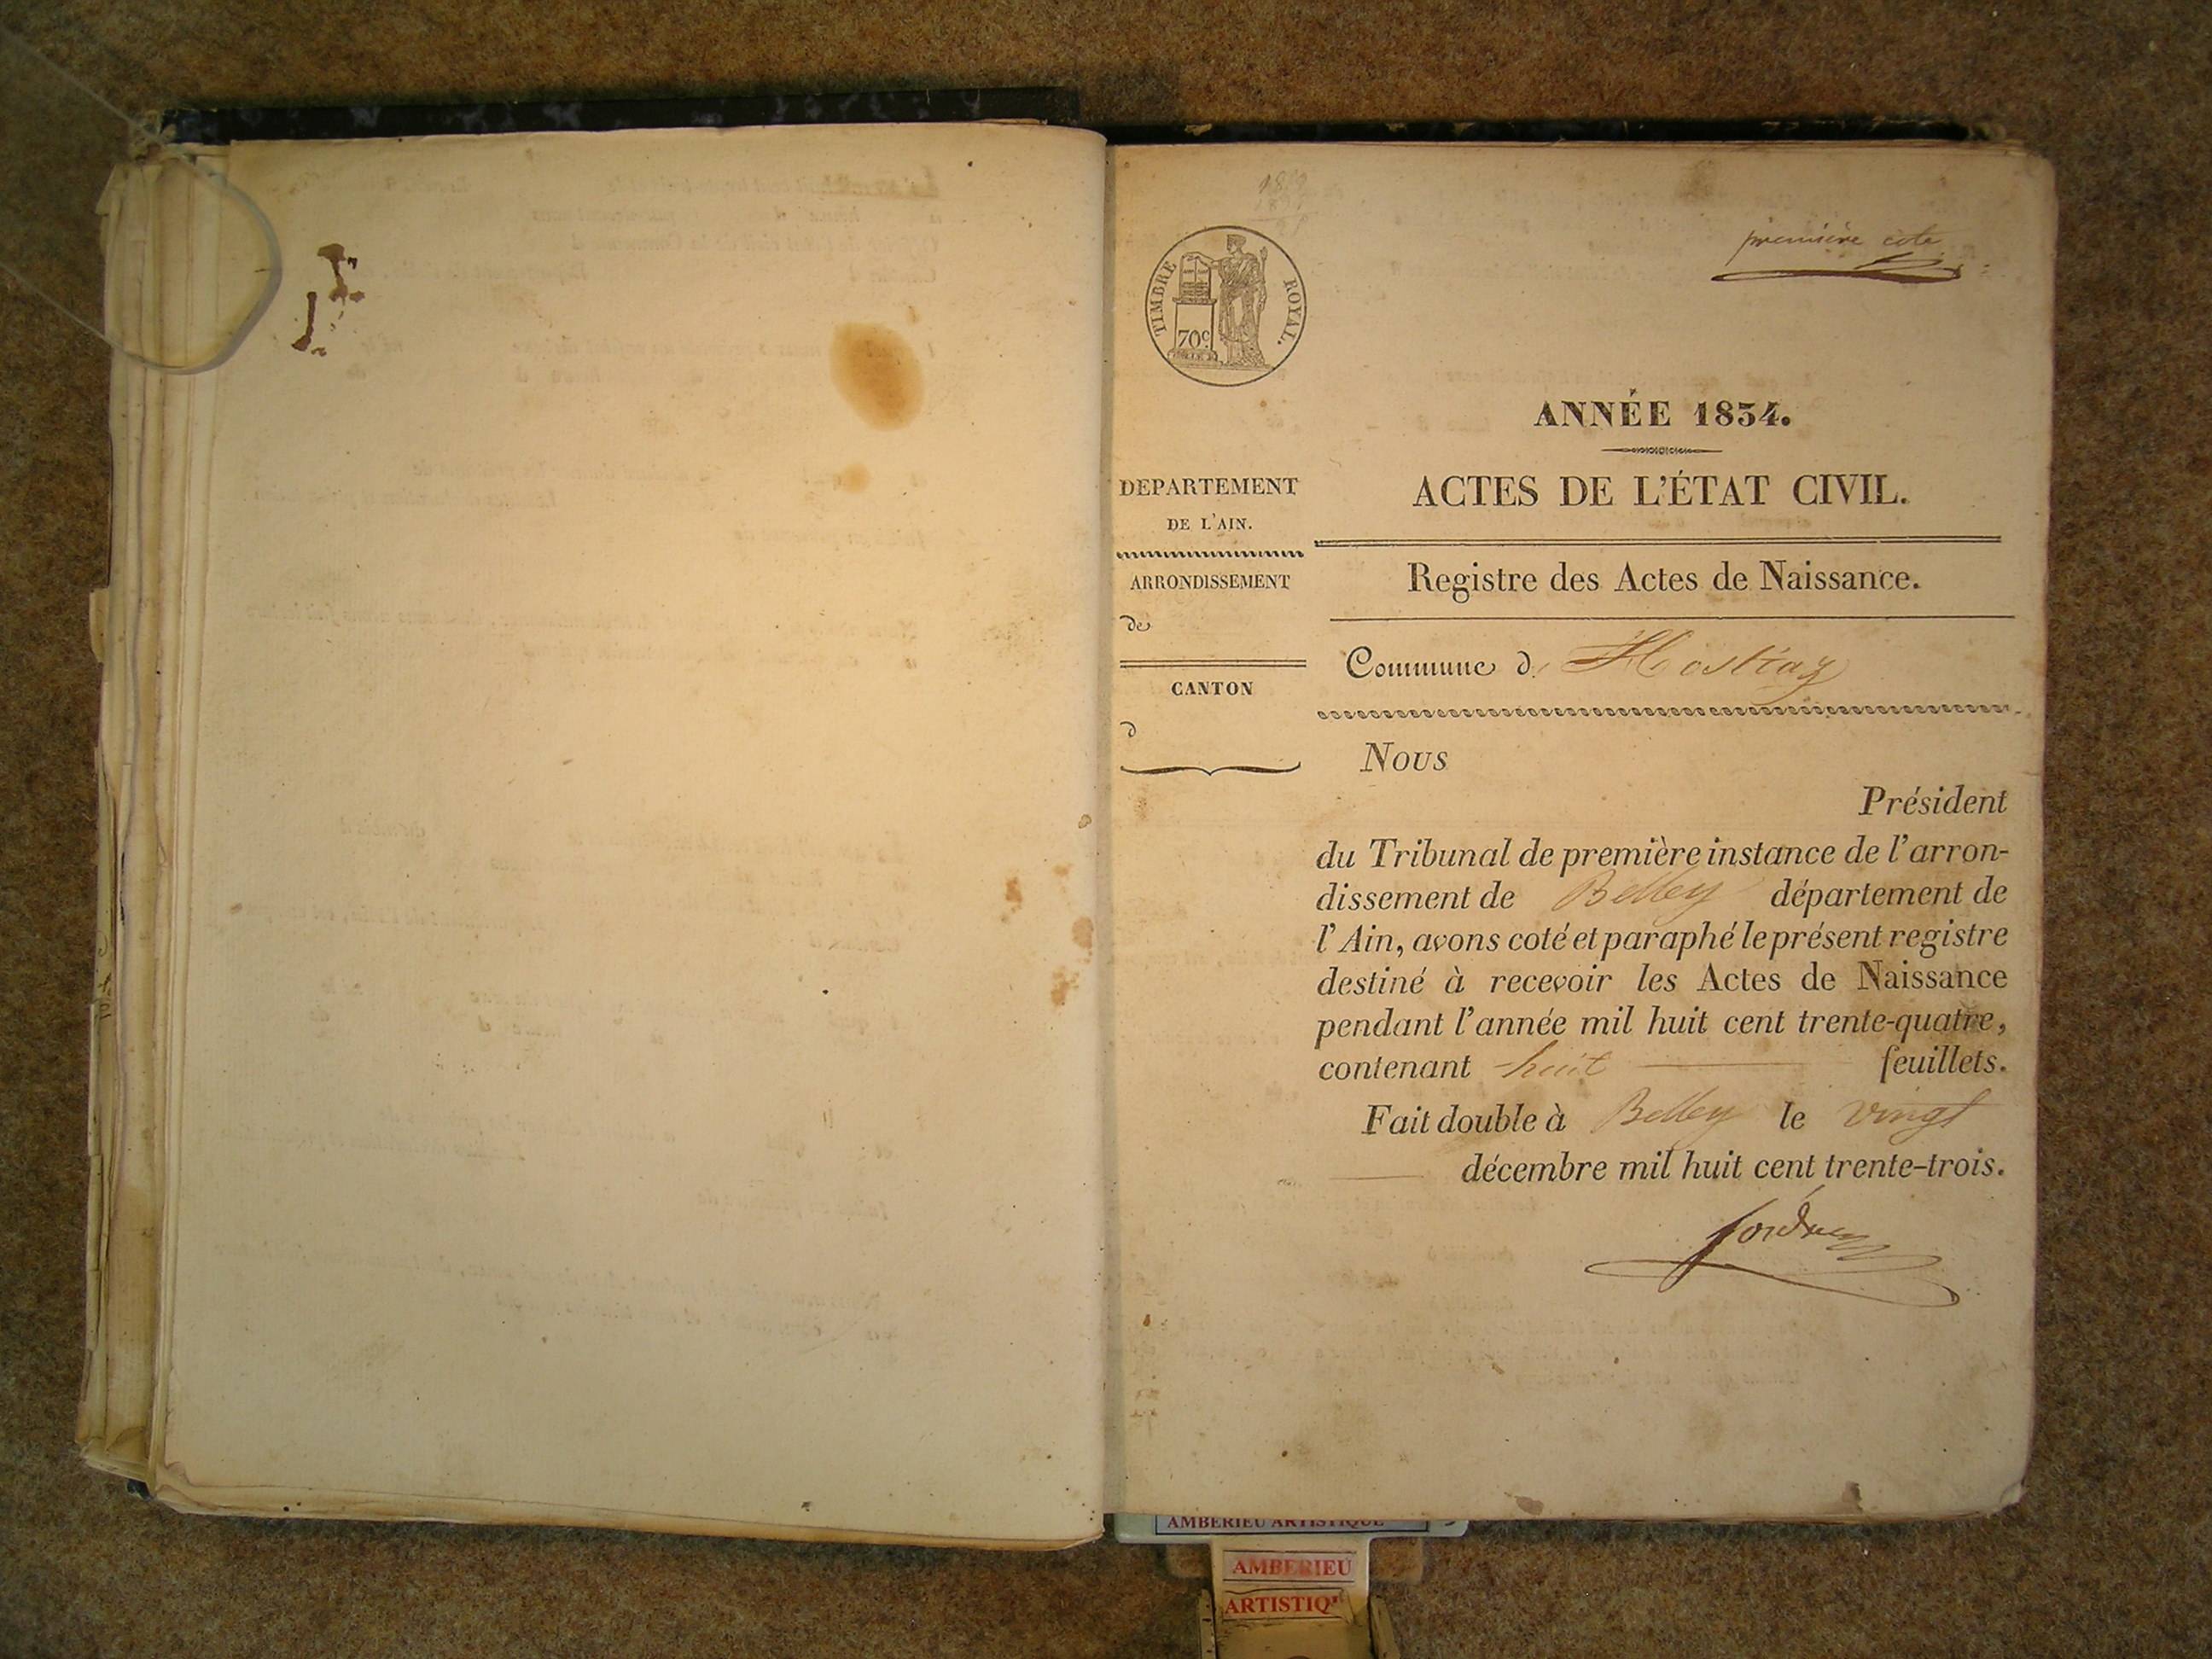 première cote
TIMBRE ROYAL.
70c
ANNÉE 1834.
ACTES DE L'ÉTAT CIVIL.
DEPARTEMENT
DE L'AIN.
ARRONDISSEMENT
de
CANTON
d
Registre des Actes de Naissance.
Commune d Hostiaz
Nous
Président
du Tribunal de première instance de l'arron-
dissement de Belley département de
l'Ain, avons coté et paraphé le présent registre
destiné à recevoir les Actes de Naissance
pendant l'année mil huit cent trente-quatre,
contenant huit feuillets.
Fait double à Belley le vingt
décembre mil huit cent trente-trois.
AMBERIEU ARTISTIQUE
AMBERIEU
ARTISTIQ